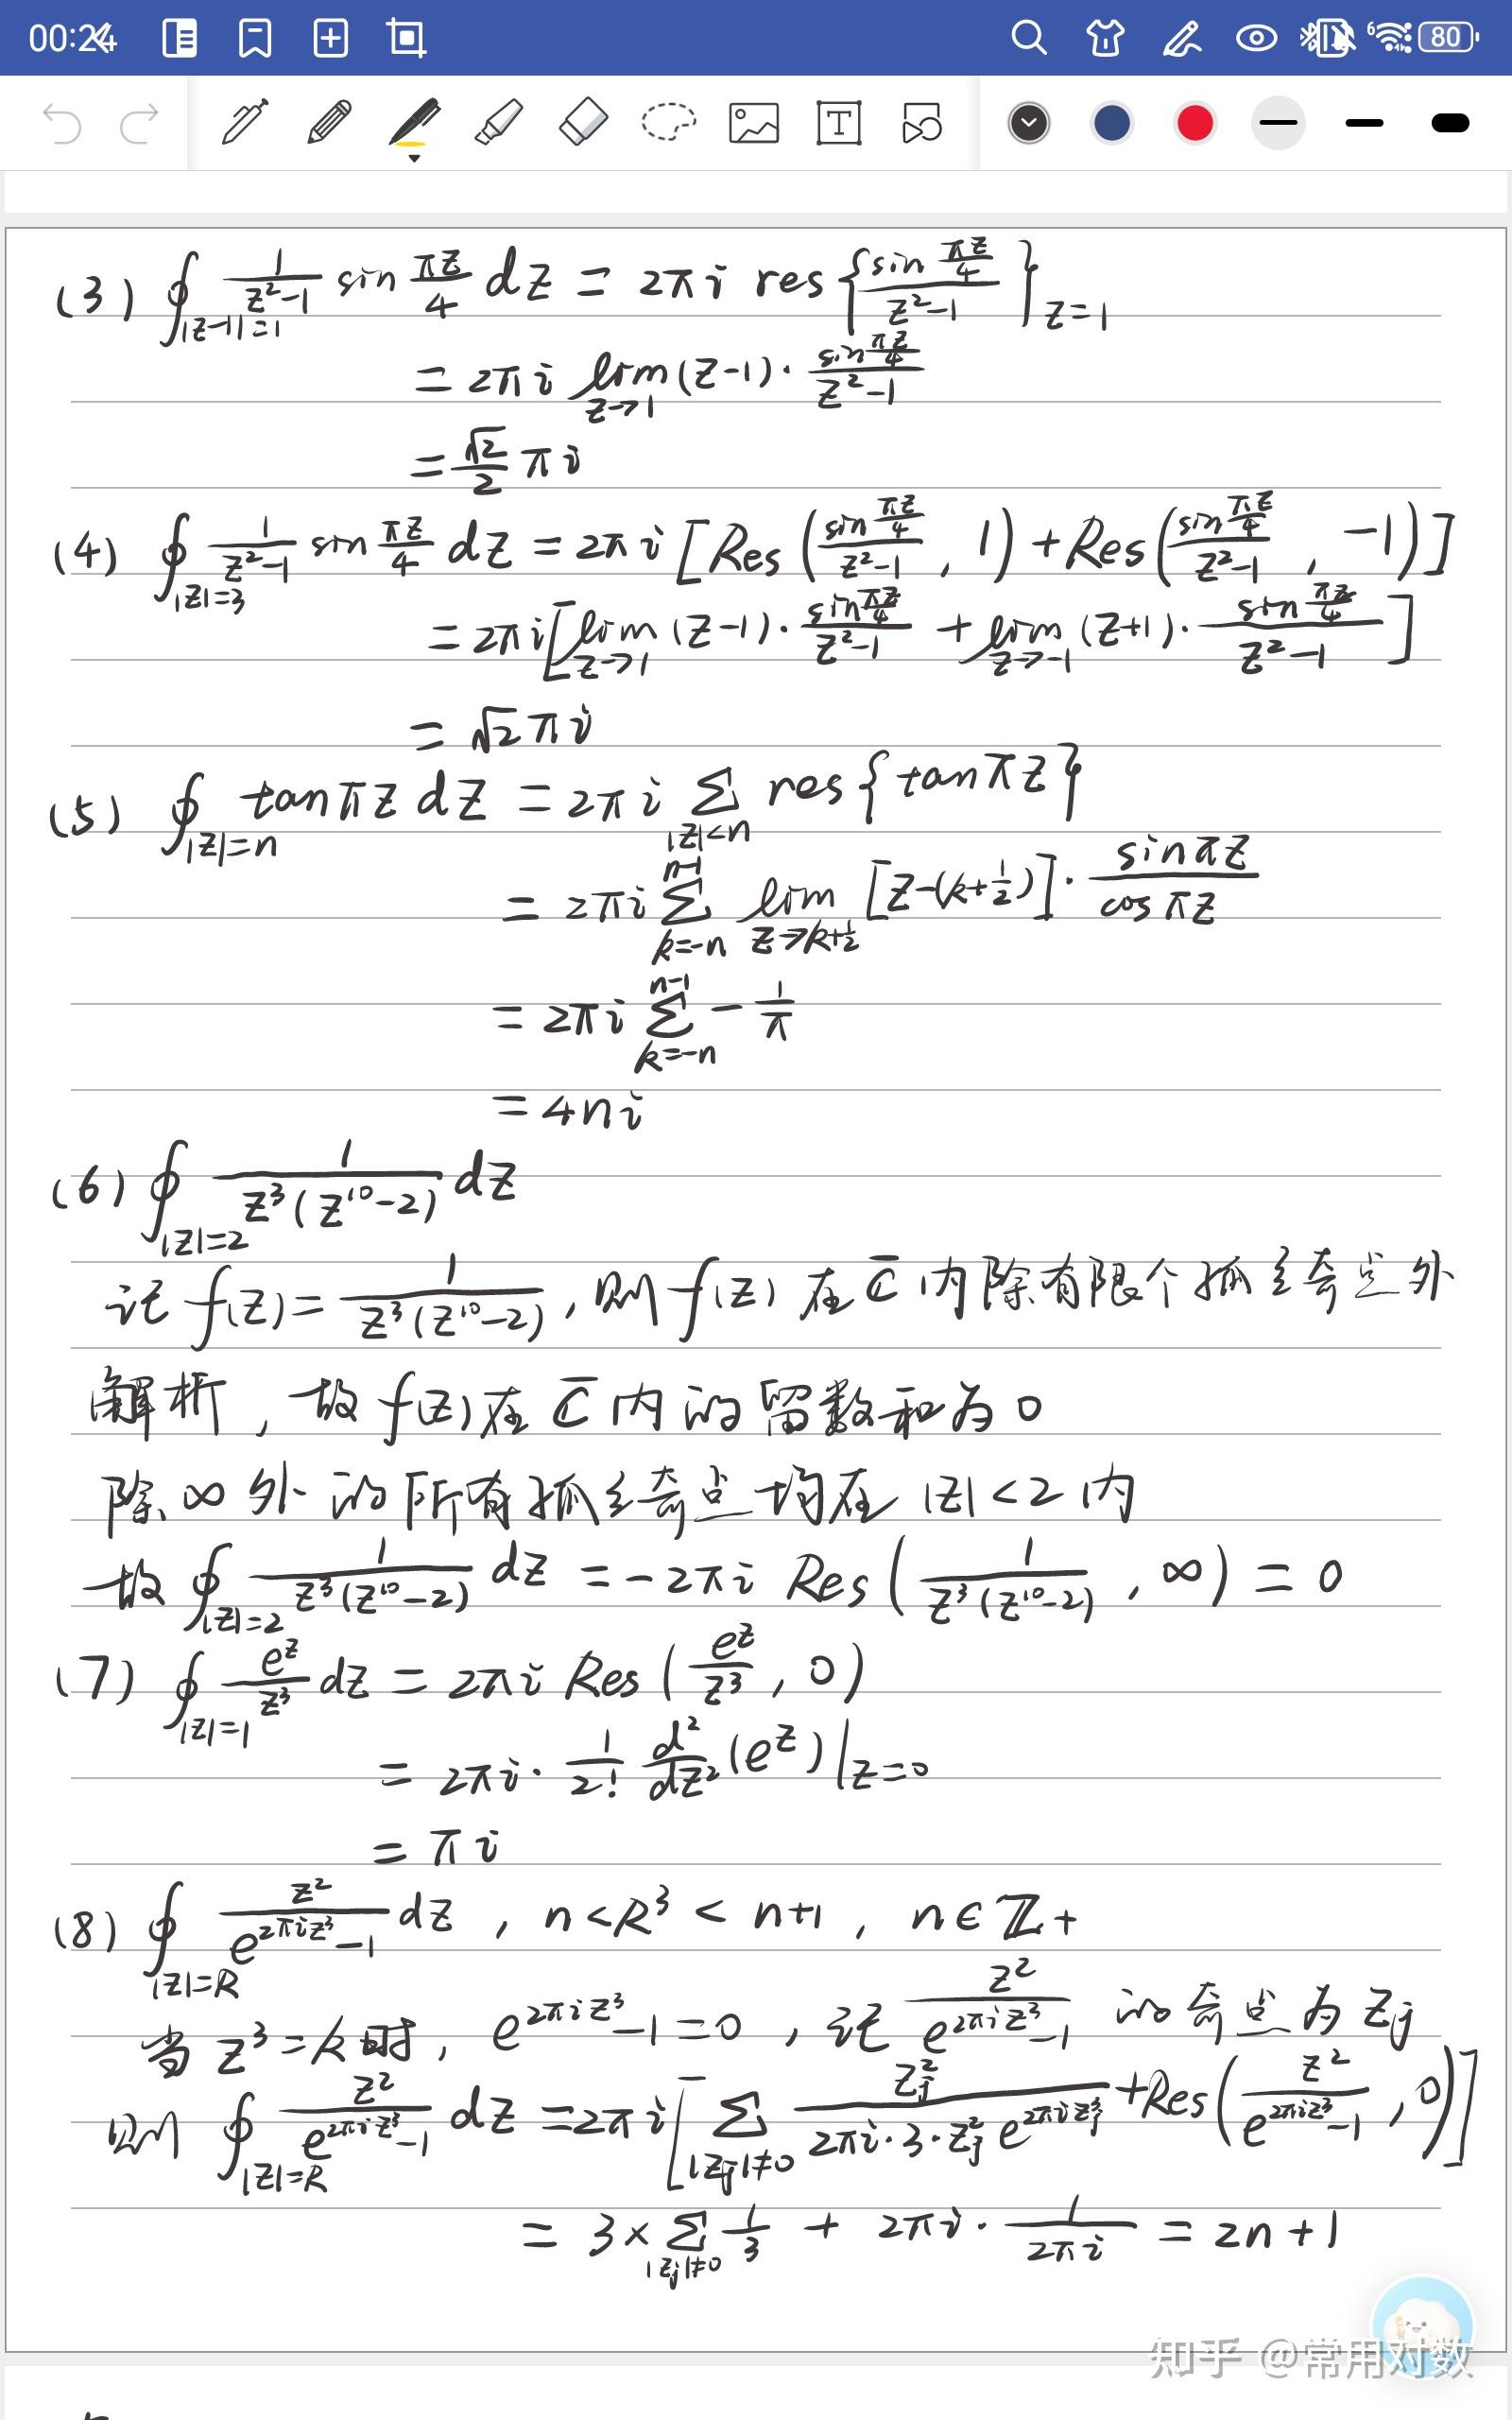 00:24
80
(3) ∮_{|z-1|=1} \frac{1}{z^2-1} sin \frac{πz}{4} dz = 2πi res{\frac{sin \frac{πz}{4}}{z^2-1}}_{z=1}
= 2πi lim_{z→1} (z-1)·\frac{sin \frac{πz}{4}}{z^2-1}
= \frac{√2}{2} πi
(4) ∮_{|z|=3} \frac{1}{z^2-1} sin \frac{πz}{4} dz = 2πi [Res(\frac{sin \frac{πz}{4}}{z^2-1}, 1) + Res(\frac{sin \frac{πz}{4}}{z^2-1}, -1)]
= 2πi [lim_{z→1} (z-1)·\frac{sin \frac{πz}{4}}{z^2-1} + lim_{z→-1} (z+1)·\frac{sin \frac{πz}{4}}{z^2-1}]
= √2 πi
(5) ∮_{|z|=n} tanπz dz = 2πi ∑_{|z|<n} res{tanπz}
= 2πi ∑_{k=-n}^{n-1} lim_{z→k+\frac{1}{2}} [z-(k+\frac{1}{2})]·\frac{sinπz}{cosπz}
= 2πi ∑_{k=-n}^{n-1} -\frac{1}{π}
= 4ni
(6) ∮_{|z|=2} \frac{1}{z^3(z^{10}-2)} dz
记 f(z) = \frac{1}{z^3(z^{10}-2)}, 则 f(z) 在 \overline{C} 内除有限个孤立奇点外
解析, 故 f(z) 在 \overline{C} 内的留数和为 0
除 ∞ 外的所有孤立奇点均在 |z|<2 内
故 ∮_{|z|=2} \frac{1}{z^3(z^{10}-2)} dz = -2πi Res(\frac{1}{z^3(z^{10}-2)}, ∞) = 0
(7) ∮_{|z|=1} \frac{e^z}{z^3} dz = 2πi Res(\frac{e^z}{z^3}, 0)
= 2πi·\frac{1}{2!} \frac{d^2}{dz^2}(e^z)|_{z=0}
= πi
(8) ∮_{|z|=R} \frac{z^2}{e^{2πiz^3}-1} dz, n<R^3<n+1, n∈ℤ+
当 z^3=k 时, e^{2πiz^3}-1=0, 记 \frac{z^2}{e^{2πiz^3}-1} 的奇点为 z_j
则 ∮_{|z|=R} \frac{z^2}{e^{2πiz^3}-1} dz = 2πi [∑_{|z_j|≠0} \frac{z_j^2}{2πi·3·z_j^2 e^{2πiz_j^3}} + Res(\frac{z^2}{e^{2πiz^3}-1}, 0)]
= 3×∑_{|z_j|≠0} \frac{1}{3} + 2πi·\frac{1}{2πi} = 2n+1
知乎 @常用对数